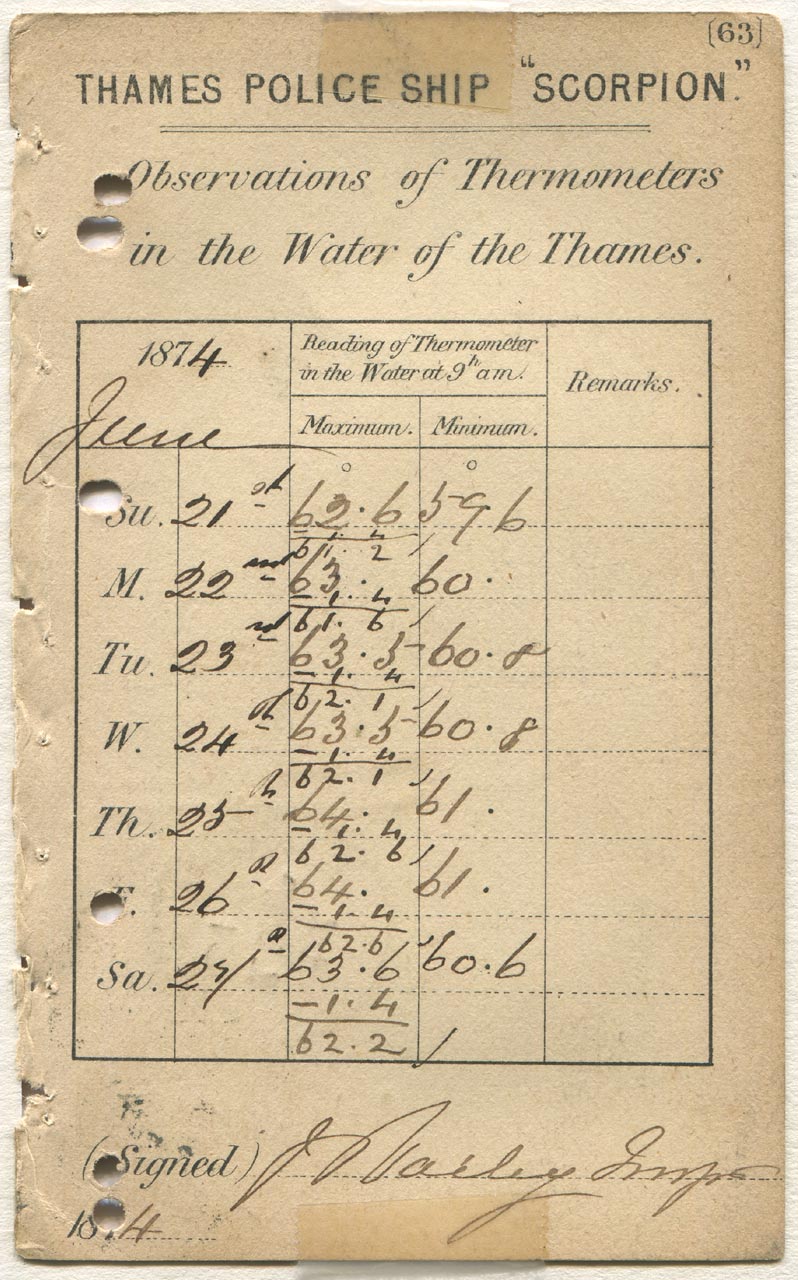 (63)
THAMES POLICE SHIP "SCORPION."
Observations of Thermometers
in the Water of the Thames.
1874
June
Reading of Thermometer
in the Water at 9h am.
Maximum. Minimum.
Remarks.
° °
Su. 21st 62.6 59.6
-1.4
61.2
M. 22nd 63. 60.
-1.4
61.6
Tu. 23rd 63.5 60.8
-1.4
62.1
W. 24th 63.5 60.8
-1.4
62.1
Th. 25th 64. 61.
-1.4
62.6
F. 26th 64. 61.
-1.4
62.6
Sa. 27th 63.6 60.6
-1.4
62.2
(Signed) J
1874